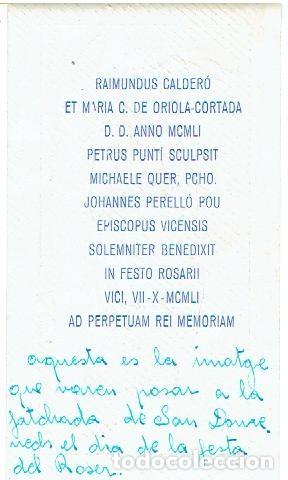 RAIMUNDUS CALDERÓ
ET MARIA C. DE ORIOLA-CORTADA
D. D. ANNO MCMLI
PETRUS PUNTÍ SCULPSIT
MICHAELE QUER, PCHO.
JOHANNES PERELLÓ POU
EPISCOPUS VICENSIS
SOLEMNITER BENEDIXIT
IN FESTO ROSARII
VICI, VII-X-MCMLI
AD PERPETUAM REI MEMORIAM
aquesta es la imatge
que varen posar a la
fatchada de San
el dia de la festa
del Roser.
todocoleccion